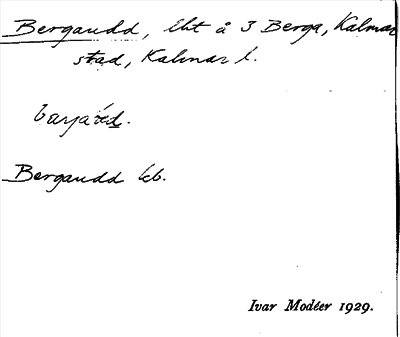 Bergaudd, lht å 3 Berga, Kalmar
stad, Kalmar l.
barjaúd.
Bergaudd kb.
Ivar Modéer 1929.